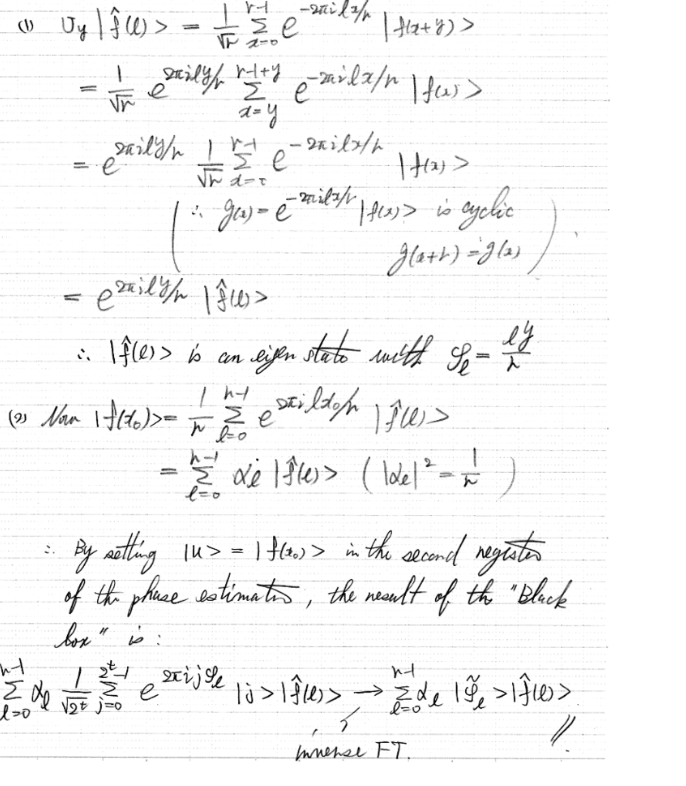 (1) U_y |f̂(ℓ)> = 1/√r Σ_{x=0}^{r-1} e^{-2πiℓx/r} |f(x+y)>
= 1/√r e^{2πiℓy/r} Σ_{x=y}^{r-1+y} e^{-2πiℓx/r} |f(x)>
= e^{2πiℓy/r} 1/√r Σ_{x=0}^{r-1} e^{-2πiℓx/r} |f(x)>
( ∵ g(x) = e^{-2πiℓx/r} |f(x)> is cyclic
g(x+r) = g(x) ) .
= e^{2πiℓy/r} |f̂(ℓ)>
∴ |f̂(ℓ)> is an eigen state with φ_ℓ = ℓy/r
(2) Now |f(x₀)> = 1/r Σ_{ℓ=0}^{r-1} e^{2πiℓx₀/r} |f̂(ℓ)>
= Σ_{ℓ=0}^{r-1} α_ℓ |f̂(ℓ)> ( |α_ℓ|² = 1/r )
∴ By setting |u> = |f(x₀)> in the second register
of the phase estimation, the result of the "Black
box" is :
Σ_{ℓ=0}^{r-1} α_ℓ 1/√2^t Σ_{j=0}^{2^t-1} e^{2πijφ_ℓ} |j>|f̂(ℓ)> → Σ_{ℓ=0}^{r-1} α_ℓ |φ̃_ℓ>|f̂(ℓ)>
inverse FT. //